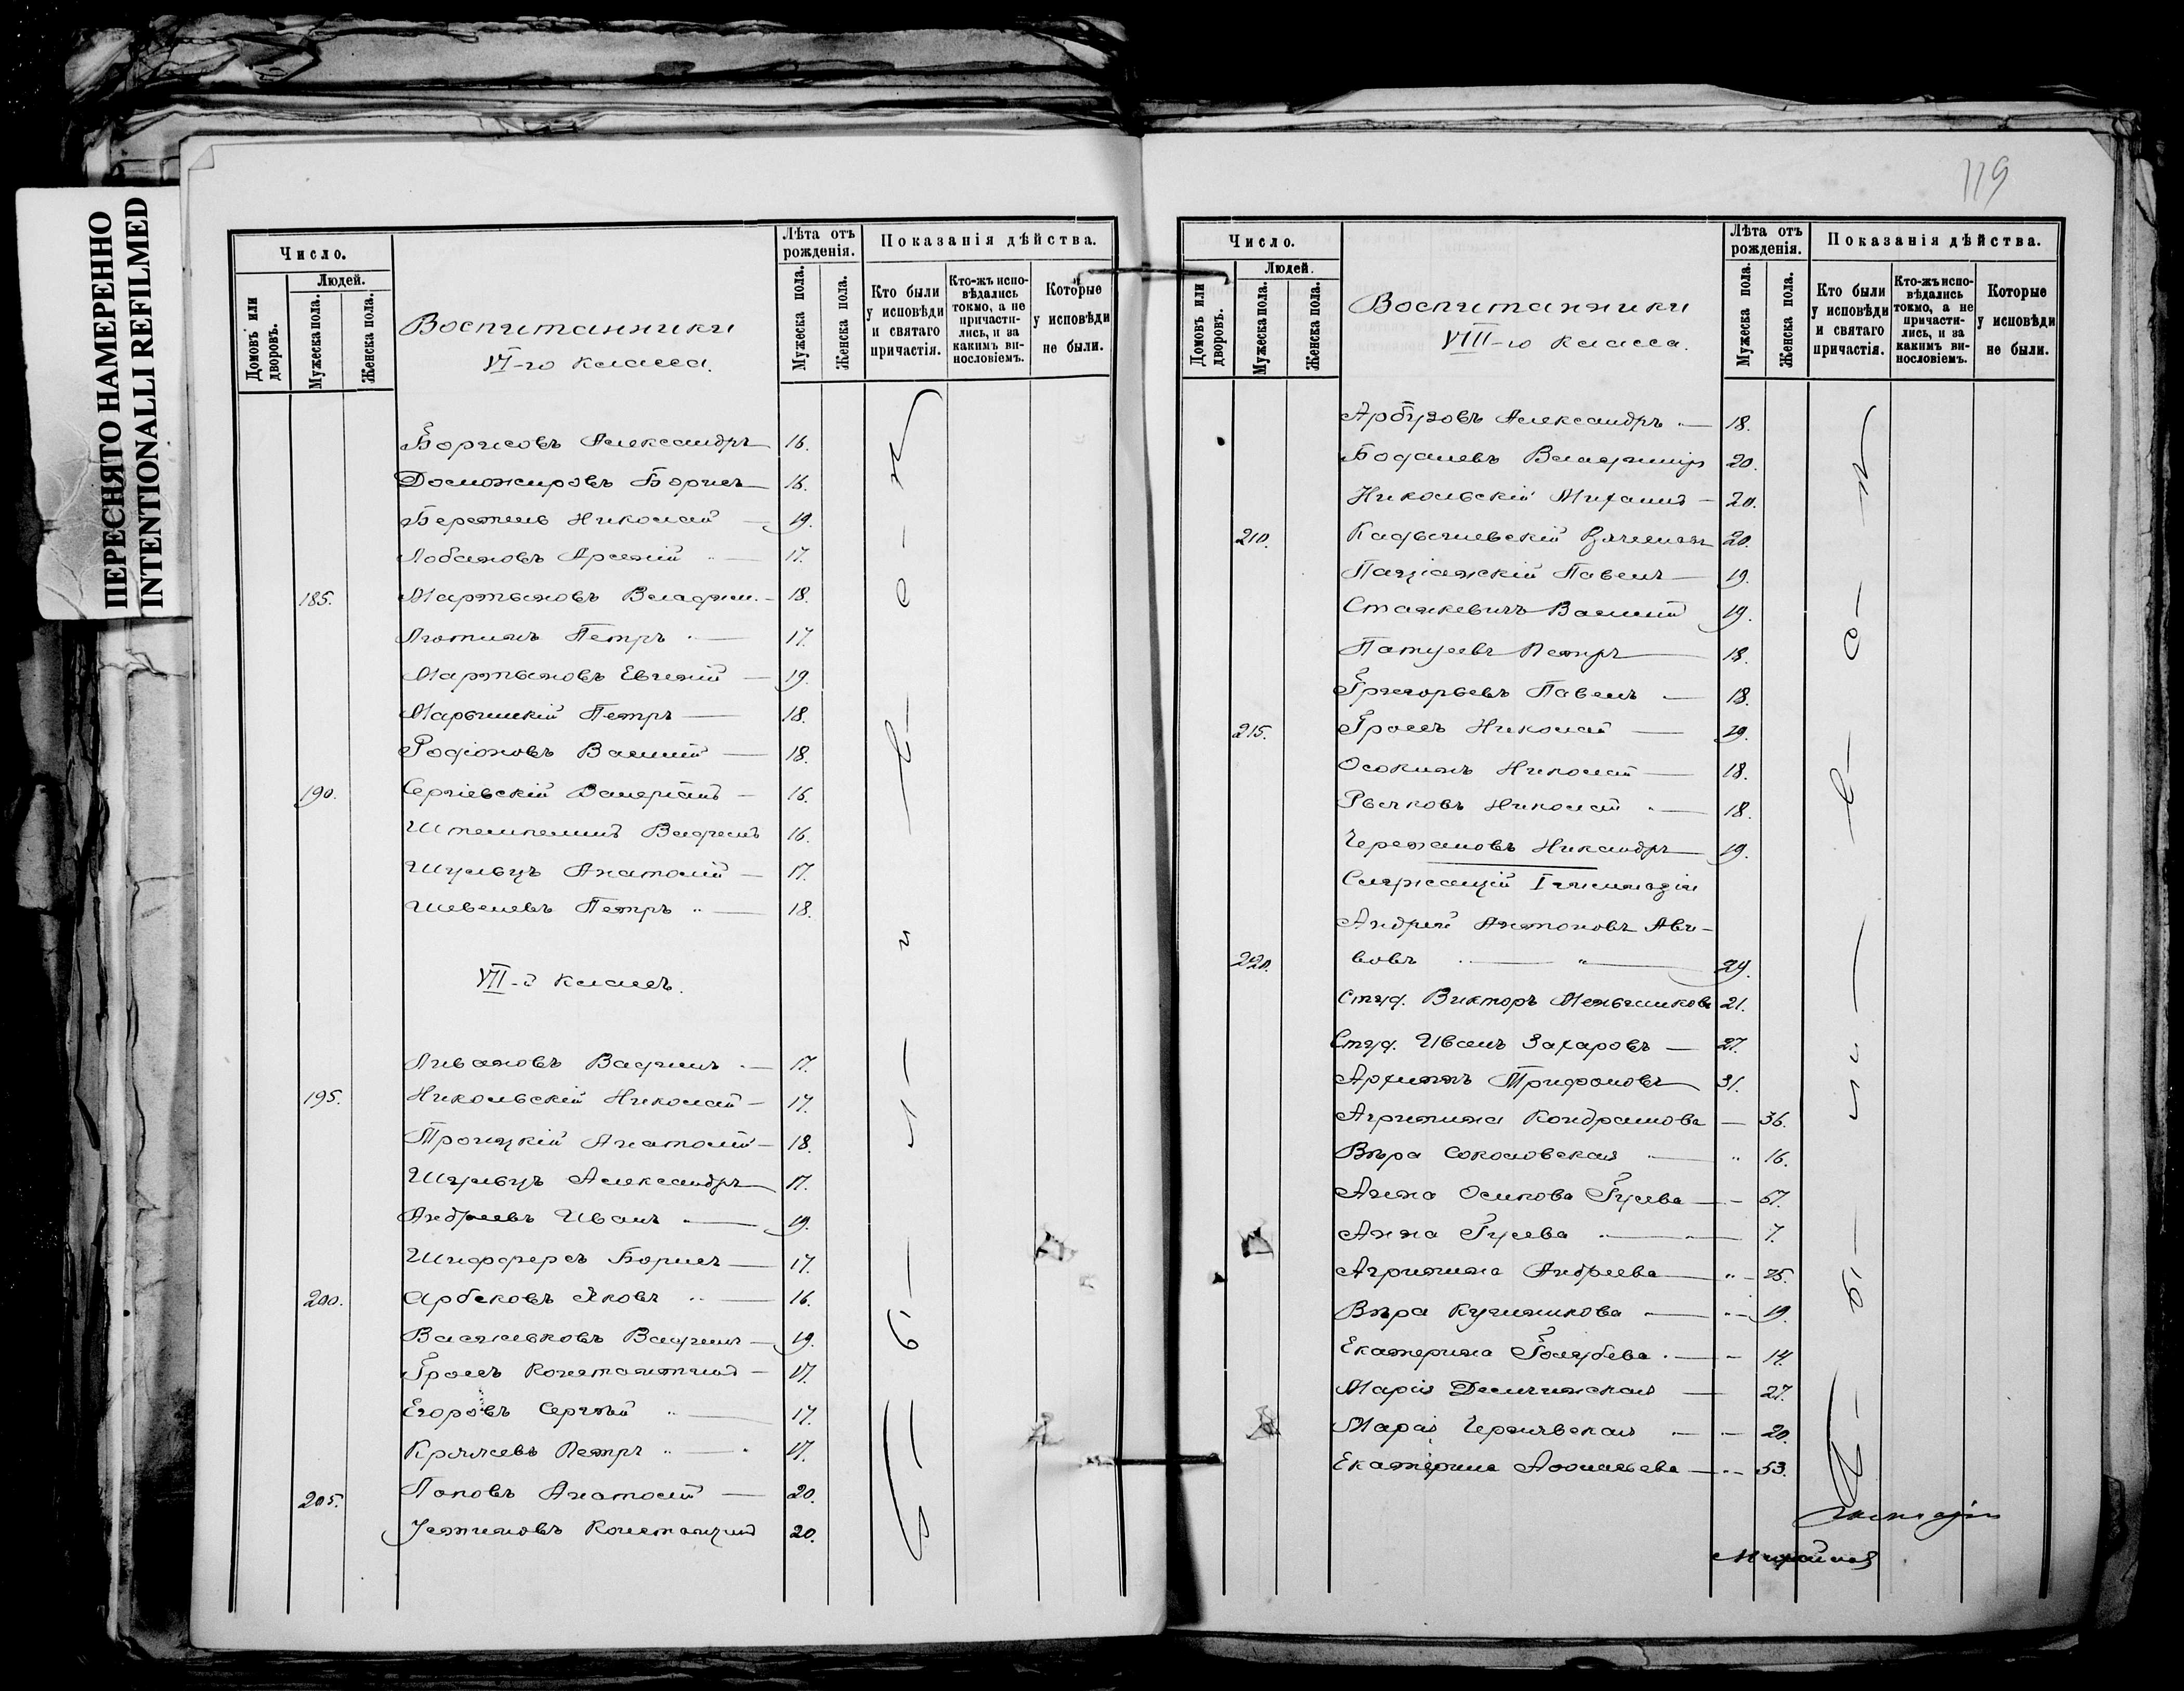 ПЕРЕСНЯТО НАМЕРЕННО
INTENTIONALLI REFILMED
Число.
Людей.
Домовъ или дворовъ.
Мужеска пола.
Женска пола.
Воспитанники
VI-го класса.
Лѣта отъ рожденія.
Мужеска пола.
Женска пола.
Показанія дѣйства.
Кто были у исповѣди и святаго причастія.
Кто-жъ исповѣдались токмо, а не причастились, и за какимъ винословіемъ.
Которые у исповѣди не были.
Борисовъ Александръ 16.
Борисъ 16.
Николай 19.
Лобановъ Арсеній 17.
185. Мартыновъ Владим. 18.
Лютинъ Петръ 17.
Мартыновъ Евгеній 19.
Петръ 18.
Родіоновъ Василій 18.
190. Сергіевскій Валеріанъ 16.
16.
Шульцъ Анатолій 17.
Шевелевъ Петръ 18.
VII-й классъ.
Ливановъ Вадимъ 17.
195. Никольскій Николай 17.
Троицкій Анатолій 18.
Шульцъ Александръ 17.
Андреевъ Иванъ 19.
Шифферсъ Борисъ 17.
200. Арбековъ Яковъ 16.
19.
Гроссъ Константинъ 17.
Егоровъ Сергѣй 17.
Петръ 17.
205. Поповъ Анатолій 20.
Устиновъ Константинъ 20.
119
Число.
Людей.
Домовъ или дворовъ.
Мужеска пола.
Женска пола.
Воспитанники
VIII-го класса.
Лѣта отъ рожденія.
Мужеска пола.
Женска пола.
Показанія дѣйства.
Кто были у исповѣди и святаго причастія.
Кто-жъ исповѣдались токмо, а не причастились, и за какимъ винословіемъ.
Которые у исповѣди не были.
Арбузовъ Александръ 18.
Владиміръ 20.
Никольскій Михаилъ 20.
210. 20.
Павелъ 19.
Станкевичъ Василій 19.
Петръ 18.
Григорьевъ Павелъ 18.
215. Гроссъ Николай 19.
Осокинъ Николай 18.
Рычковъ Николай 18.
Никандръ 19.
Служащіе I гимназіи
Андрей Антоновъ Аві-
220. вовъ 24.
Студ. Викторъ Меньшиковъ 21.
Студ. Иванъ Захаровъ 27.
Трифоновъ 31.
Агрипина Кондрашова 36.
Вѣра Соколовская 16.
Анна Осипова Гусева 67.
Анна Гусева 7.
Агрипина Андреева 75.
Вѣра 19.
Екатерина Голубева 14.
Марія 27.
Марія Чернявская 20.
Екатерина 53.